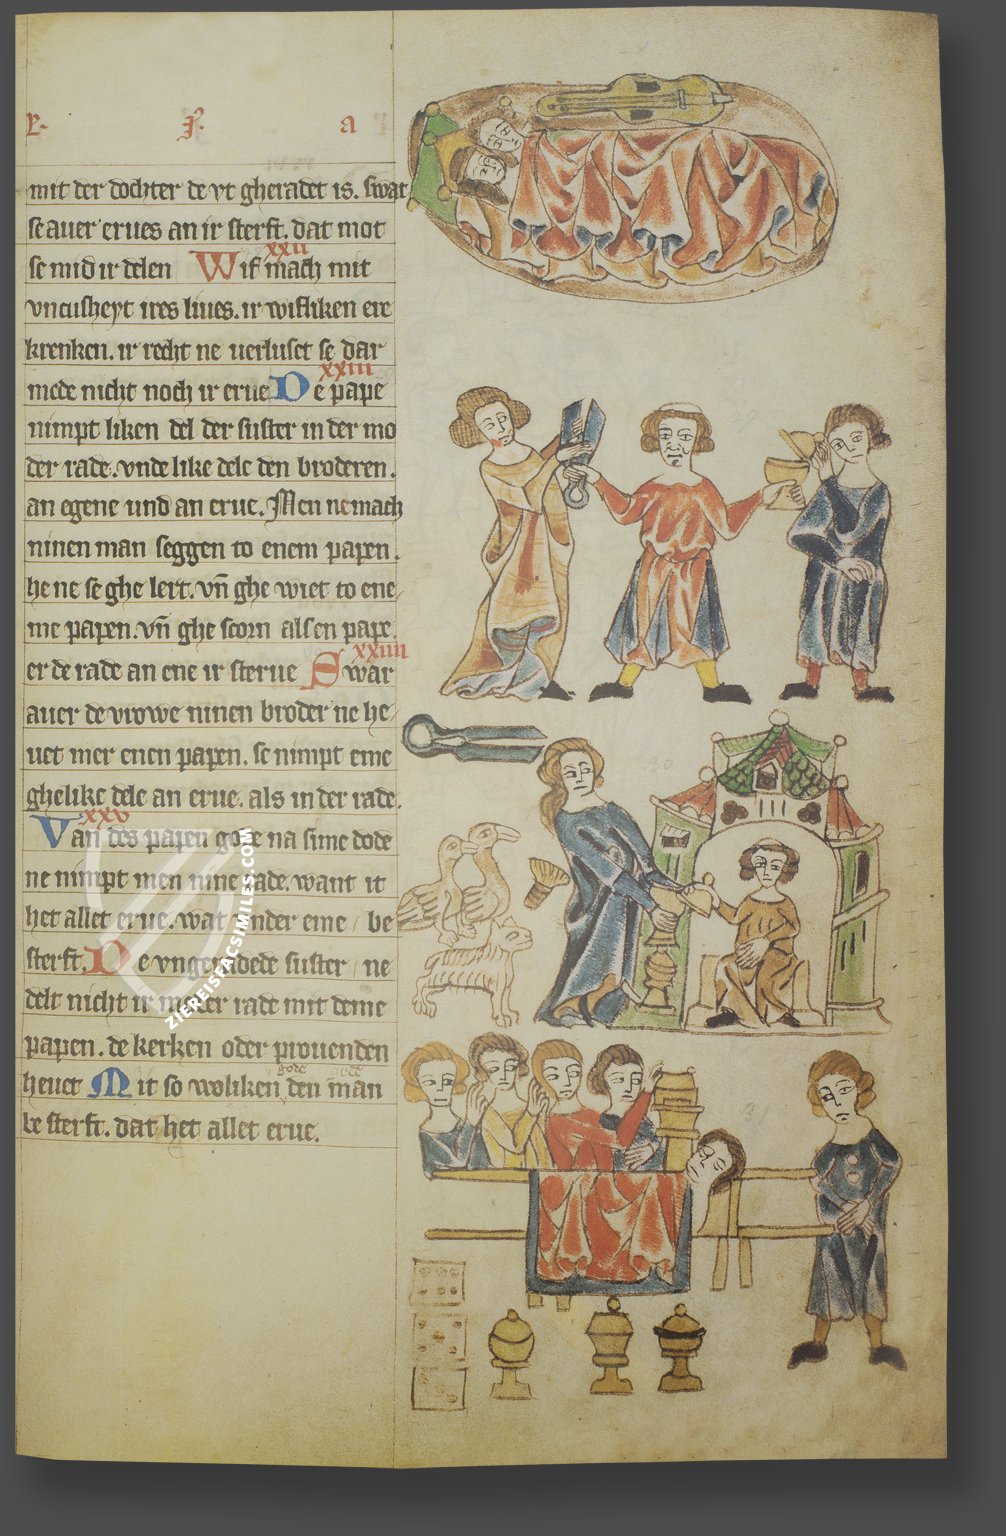 mit der dochter de vt gheradet is. swat
se auer erues an ir sterft. dat mot
xxii
se mid ir delen Wif mach mit
vncusheyt ires liues. ir wifliken ere
krenken. ir recht ne uerluset se dar
xxiii
mede nicht noch ir erue De pape
nimpt liken del der suster in der mo
der rade. vnde like dele den broderen.
an egene und an erue. Men ne mach
ninen man seggen to enem papen.
he ne se ghe lert. vn̄ ghe wiet to ene
me papen. vn̄ ghe scorn alsen pape.
xxiiii
er de rade an ene ir sterue Swar
auer de vrowe ninen broder ne he
uet mer enen papen. se nimpt eme
ghelike dele an erue. als in der rade.
xxv
Van des papen gode na sime dode
ne nimpt men nine rade. want it
het allet erue. wat vnder eme be
sterft. De vngeradede suster ne
delt nicht ir moder rade mit deme
papen. de kerken oder prouenden
gode
heuet Mit so woliken den man
be sterft. dat het allet erue.
ZIEREISFACSIMILES.COM